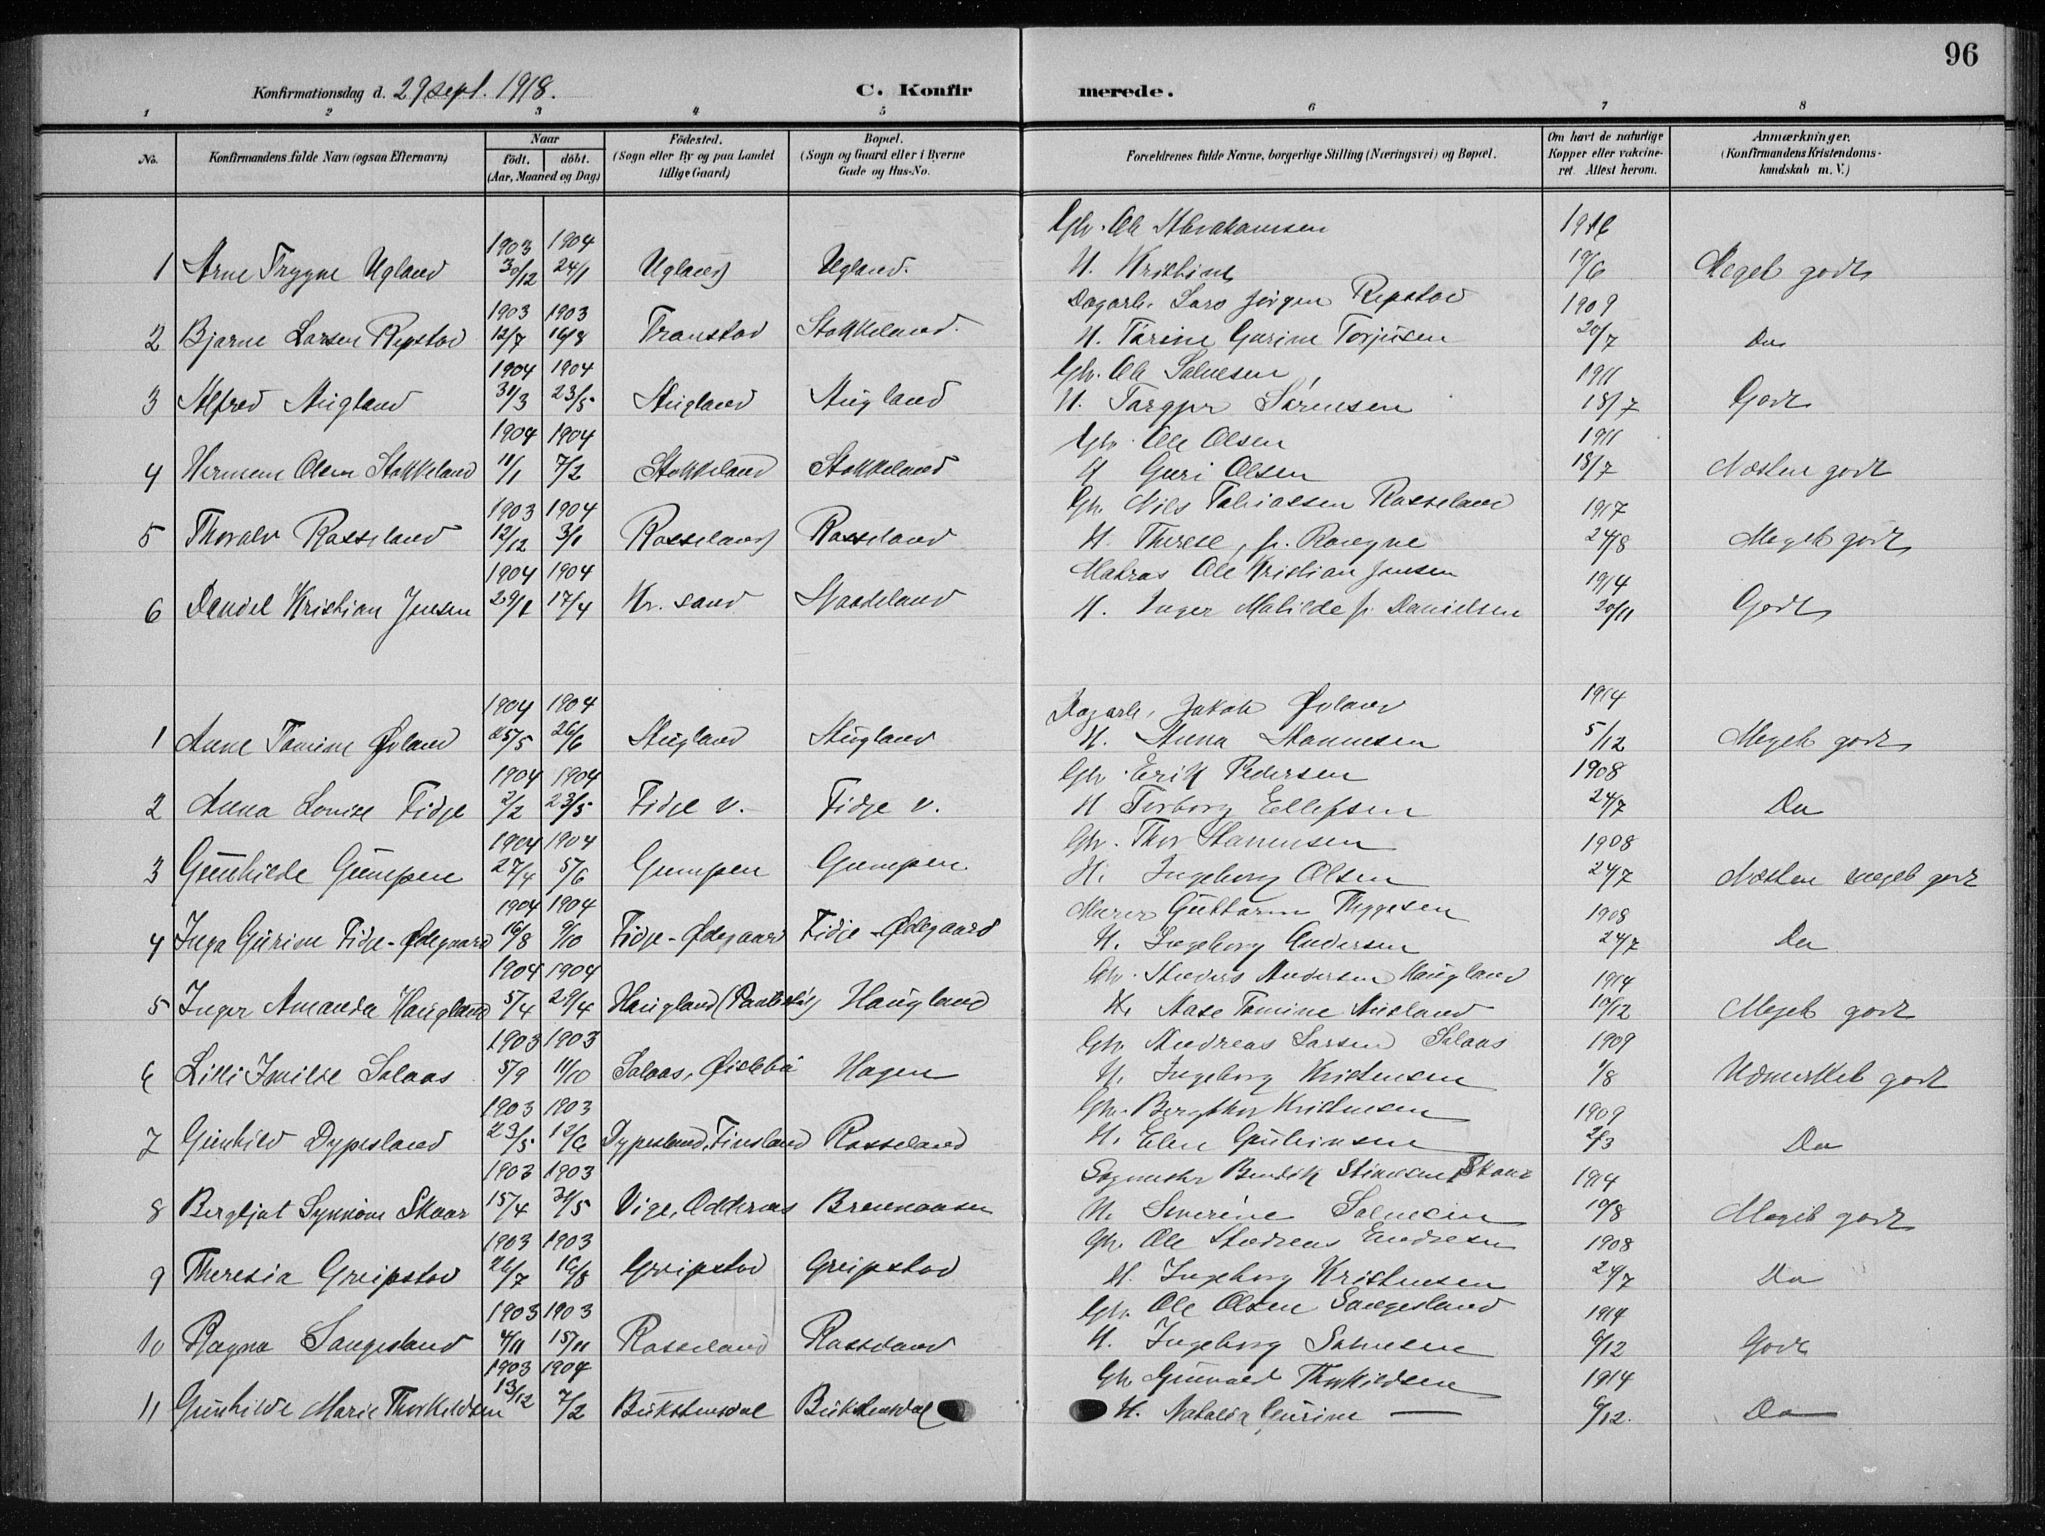 96
Konfirmationsdag d. 29 sept. 1918.
C. Konfirmerede.
1 2 3 4 5 6 7 8
No.
Konfirmandens fulde Navn (ogsaa Efternavn)
Naar
födt. döbt.
(Aar, Maaned og Dag)
Födested.
(Sogn eller By og paa Landet
tillige Gaard)
Bopæl.
(Sogn og Gaard eller i Byerne
Gade og Hus-No.
Forældrenes fulde Navne, borgerlige Stilling (Næringsvei) og Bopæl.
Om havt de naturlige
Kopper eller vakcine-
ret. Attest herom.
Anmærkninger.
(Konfirmandens Kristendoms-
kundskab m. V.)
1903 1904 Gbr. Ole Abrahamsen 1916
1 Arne Trygve Ugland 30/12 24/1 Ugland Ugland. H. Kristine 10/6 Meget godt
1903 1903 Dagarb. Lars Jörgen Repstad 1909
2 Bjarne Larsen Repstad 12/7 16/8 Transtad Stokkeland. H. Tarine Gurine Torjusen 20/7 Do
1904 1904 Gbr. Ole Salvesen 1911
3 Alfred Augland 31/3 23/5 Augland Augland H. Torgjer Sörensen 18/7 Godt
1904 1904 Gbr. Ole Olsen 1911
4 Olsen Stokkeland 11/1 7/2 Stokkeland Stokkeland H Guri Olsen 18/7 Næsten godt
1903 1904 Gbr. Nils Tobiassen Rosseland 1917
5 Thoralv Rosseland 12/12 3/1 Rosseland Rosseland H. Therese, f. 24/8 Meget godt
1904 1904 Matros Ole Kristian Jensen 1914
6 Daniel Kristian Jensen 29/1 17/4 Kr. sand H. Inger Matilde f. Danielsen 20/11 Godt
1904 1904 Dagarb. Jakob Øvland 1914
1 Anne Tomine Øvland 25/5 26/6 Augland Augland H. Anna Hannesen 5/12 Meget godt
1904 1904 Gbr. Erik Pedersen 1908
2 Anna Lovise Fidje 2/2 23/5 Fidje v. Fidje v. H Torborg Ellefsen 24/7 Do
1904 1904 Gbr. Thor Hannesen 1908
3 Gunhilde Gumpen 27/4 5/6 Gumpen Gumpen H. Ingeborg Olsen 24/7 Næsten meget godt
1904 1904 Murer Guttorm Thygesen 1908
4 Inga Gurine Fidje-Ødegaard 16/8 9/10 Fidje-Ødegaard Fidje-Ødegaard H. Ingeborg Andersen 24/7 Do
1904 1904 Gbr. Anders Andersen Haugland 1914
5 Inger Amanda Haugland 5/4 29/4 Haugland Haugland H. Aase Tomine 10/12 Meget godt
1903 1903 Gbr. Andreas Larsen Solaas 1909
6 Lilli Solaas 5/9 11/10 Solaas, Øislebö Hagen H. Ingeborg Kristensen 1/8 Udmerket godt
1903 1903 Gbr. Bergthor Kristensen 1909
7 Gunhild Dypesland 23/5 12/6 Dypesland, Finsland Rosseland H. Elen 2/3 Do
1903 1903 Sagmester Bendik Skaar 1914
8 Bergljot Synnöve Skaar 15/4 21/5 Vige, Oddernes Brennaasen H. Severine Salvesen 10/8 Meget godt
1903 1903 Gbr. Ole Andreas Endresen 1908
9 Theresia Greipstad 26/7 16/8 Greipstad Greipstad H. Ingeborg Kristensen 24/7 Do
1903 1903 Gbr. Ole Olsen Sangesland 1914
10 Ragna Sangesland 4/11 15/11 Rosseland Rosseland H. Ingeborg Salvesen 6/12 Godt
1903 1904 Gbr Gunvald Thorkildsen 1914
11 Gunhilde Marie Thorkildsen 13/12 7/2 Bukstensdal Bukstensdal H. Natalia Gurine — 6/12. Do